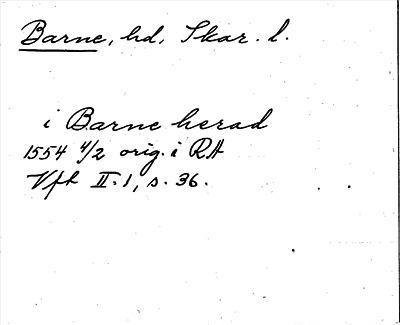 Barne, hd, Skar. l.
i Barne herad
1554 4/2 orig. i RA
Vfh II:1, s. 36.